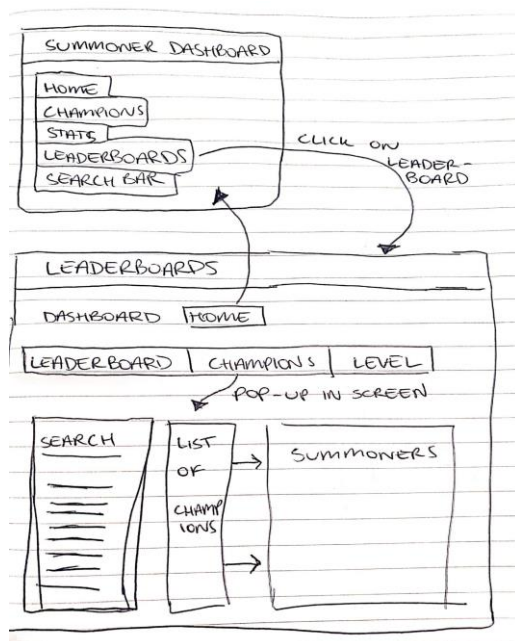 SUMMONER DASHBOARD
HOME
CHAMPIONS
STATS
LEADERBOARDS
SEARCH BAR
CLICK ON
LEADER-
BOARD
LEADERBOARDS
DASHBOARD HOME
LEADERBOARD CHAMPIONS LEVEL
POP-UP IN SCREEN
SEARCH
LIST
OF
CHAMP
IONS
SUMMONERS